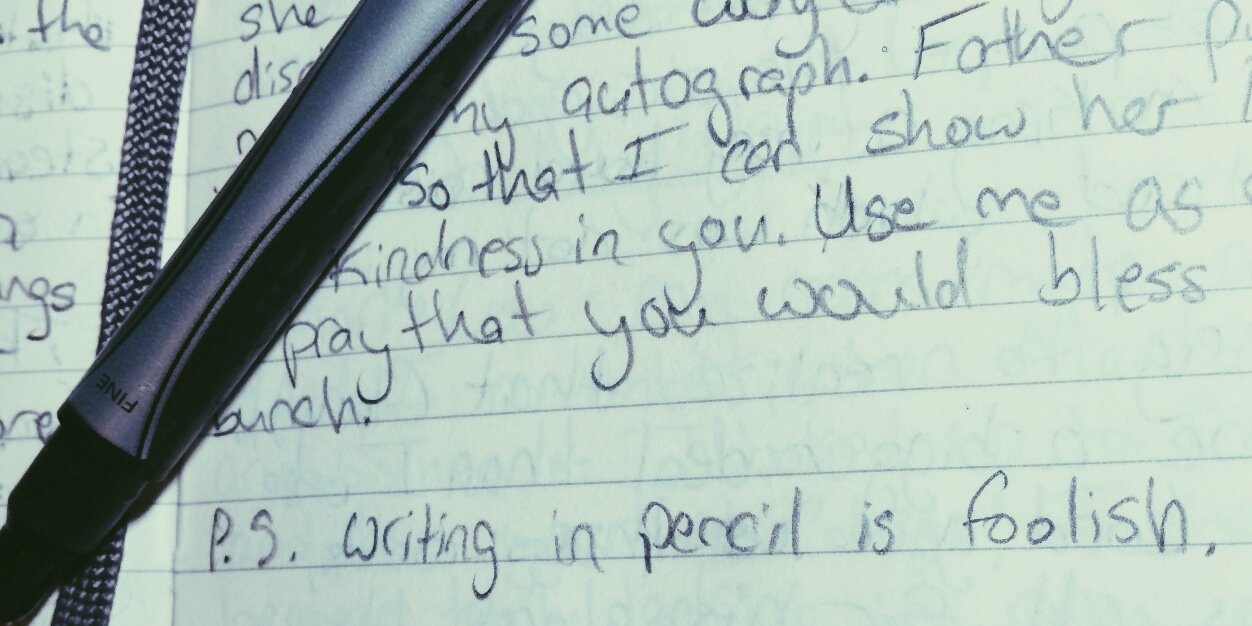 the
she some
my autograph. Father
so that I can show her
kindness in you. Use me as
pray that you would bless
bunch.
P.S. Writing in pencil is foolish.
ngs
FINE